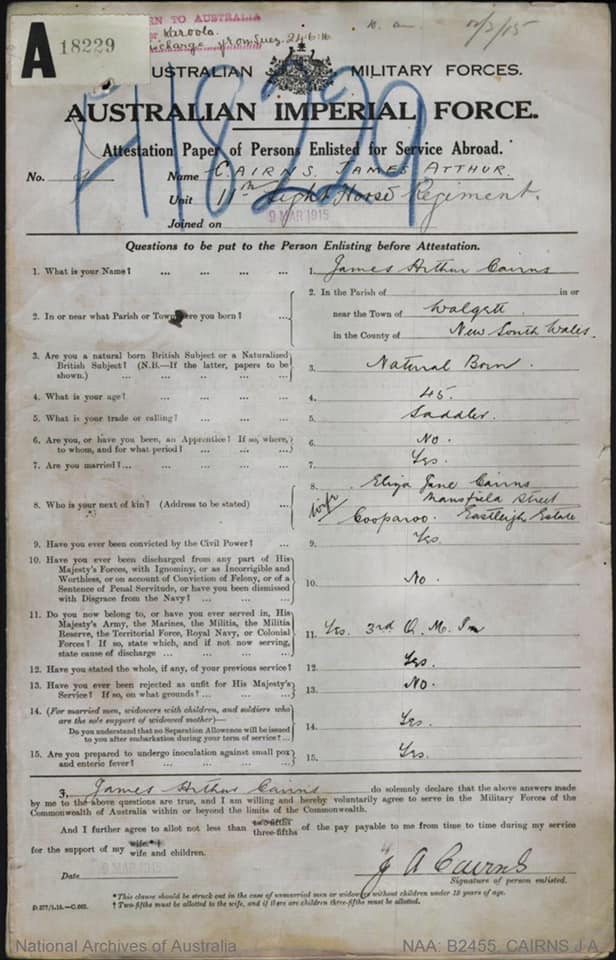 EN TO AUSTRALIA
Karoola
discharge from Suez 24.6.16
A 18229
AUSTRALIAN MILITARY FORCES.
AUSTRALIAN IMPERIAL FORCE.
A18229
Attestation Paper of Persons Enlisted for Service Abroad.
No. 9 Name CAIRNS, JAMES ATTHUR.
Unit 11th Light Horse Regiment.
Joined on 9 MAR 1915
Questions to be put to the Person Enlisting before Attestation.
1. What is your Name? ... ... ... ... 1. James Arthur Cairns
2. In or near what Parish or Town were you born? ... 2. In the Parish of in or
near the Town of Walgett.
in the County of New South Wales.
3. Are you a natural born British Subject or a Naturalized
British Subject? (N.B.—If the latter, papers to be
shown.) ... ... ... ... 3. Natural Born.
4. What is your age? ... ... ... ... 4. 45.
5. What is your trade or calling? ... ... ... 5. Saddler.
6. Are you, or have you been, an Apprentice? If so, where,
to whom, and for what period? ... ... ... 6. No.
7. Are you married? ... ... ... ... 7. Yes.
8. Who is your next of kin? (Address to be stated) ... 8. Eliza Jane Cairns
Mansfield Street
wife Cooparoo. Eastleigh Estate
9. Have you ever been convicted by the Civil Power? ... 9. Yes.
10. Have you ever been discharged from any part of His
Majesty's Forces, with Ignominy, or as Incorrigible and
Worthless, or on account of Conviction of Felony, or of a
Sentence of Penal Servitude, or have you been dismissed
with Disgrace from the Navy? ... ... ... 10. No.
11. Do you now belong to, or have you ever served in, His
Majesty's Army, the Marines, the Militia, the Militia
Reserve, the Territorial Force, Royal Navy, or Colonial
Forces? If so, state which, and if not now serving,
state cause of discharge ... ... ... ... 11. Yes. 3rd Q. M. I
12. Have you stated the whole, if any, of your previous service? 12. Yes.
13. Have you ever been rejected as unfit for His Majesty's
Service? If so, on what grounds? ... ... ... 13. No.
14. (For married men, widowers with children, and soldiers who
are the sole support of widowed mother)—
Do you understand that no Separation Allowance will be issued
to you after embarkation during your term of service? ... 14. Yes.
15. Are you prepared to undergo inoculation against small pox
and enteric fever? ... ... ... ... 15. Yes.
3, James Arthur Cairns do solemnly declare that the above answers made
by me to the above questions are true, and I am willing and hereby voluntarily agree to serve in the Military Forces of the
Commonwealth of Australia within or beyond the limits of the Commonwealth.
And I further agree to allot not less than two-fifths three-fifths of the pay payable to me from time to time during my service
for the support of my wife*† wife and children.
Date 9 MAR 1915 J A Cairns
Signature of person enlisted.
* This clause should be struck out in the case of unmarried men or widowers without children under 18 years of age.
† Two-fifths must be allotted to the wife, and if there are children three-fifths must be allotted.
National Archives of Australia NAA: B2455, CAIRNS J A